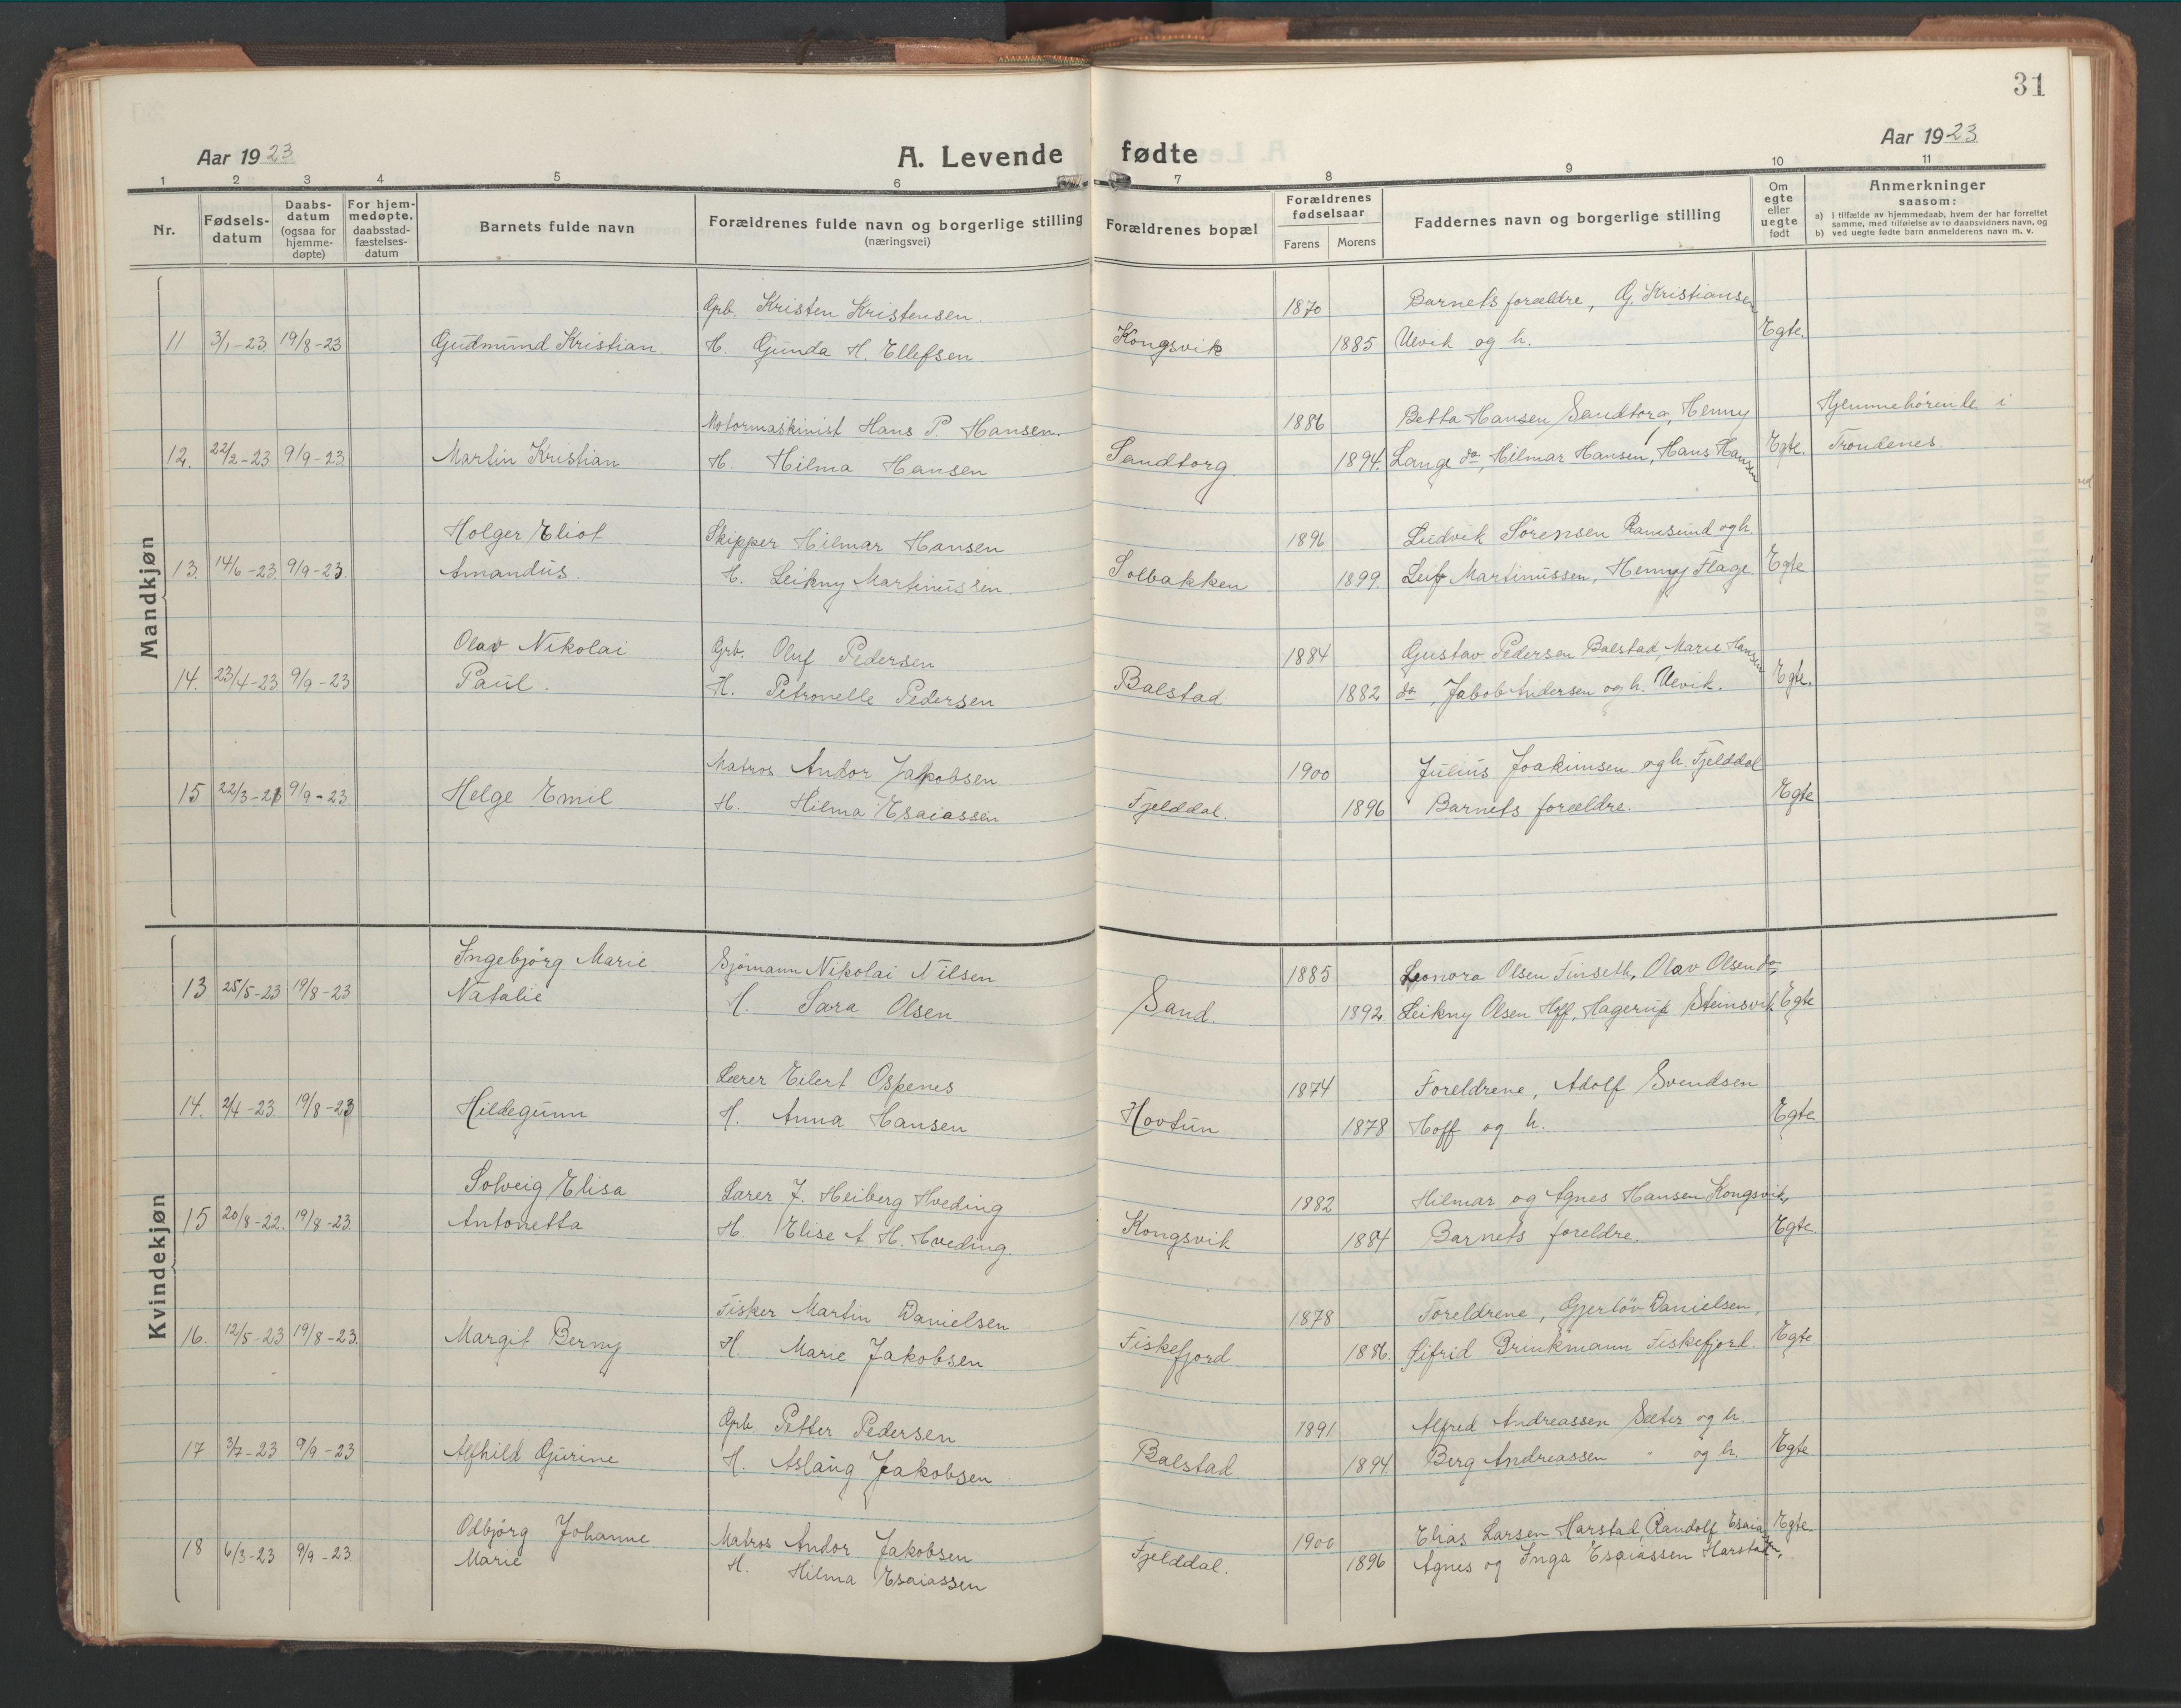 31
Aar 1923
A. Levende fødte
Aar 1923
1 2 3 4 5 6 7 8 9 10 11
Nr.
Fødsels-
datum
Daabs-
datum
(ogsaa for
hjemme-
døpte)
For hjem-
medøpte.
daabsstad-
fæstelses-
datum
Barnets fulde navn
Forældrenes fulde navn og borgerlige stilling
(næringsvei)
Forældrenes bopæl
Forældrenes
fødselsaar
Farens Morens
Faddernes navn og borgerlige stilling
Om
egte
eller
uegte
født
Anmerkninger
saasom:
a) i tilfælde av hjemmedaab, hvem der har forrettet
samme, med tilføielse av to daapsvidners navn, og
b) ved uegte fødte barn anmelderens navn m. v.
Mandkjøn
Grb. Kristen Kristensen. 1870 Barnets forældre, G. Kristiansen
11 3/1-23. 19/8-23 Gudmund Kristian H. Gunda H. Ellefsen. Kongsvik 1885 Ulvik og h. Egte.
Motormaskinist Hans P. Hansen. 1886 Betta Hansen Sandtorg, Henny Hjemmehørende i
12. 22/2-23 9/9-23 Martin Kristian H. Hilma Hansen Sandtorg. 1894. Lange do, Hilmar Hansen, Hans Hansen Egte. Trondenes.
Holger Eliot Skipper Hilmar Hansen 1896 Ludvik Sørensen Ramsund og h.
13. 14/6-23. 9/9-23. Amandus. H. Leikny Martinussen. Solbakken 1899. Leif Martinussen, Henny Flage Egte
Olav Nikolai Grb. Oluf Pedersen 1884 Gustav Pedersen Balstad, Marie Hansen
14. 23/4-23 9/9-23 Paul. H. Petronelle Pedersen Balstad 1882 do, Jakob Andersen og h. Ulvik. Egte.
Matros Andor Jakobsen 1900 Julius Joakimsen og h. Fjelddal
15 22/3-21 9/9-23 Helge Emil H. Hilma Esaiassen Fjelddal. 1896 Barnets forældre. Egte
Kvindekjøn
Ingebjørg Marie Sjømann Nikolai Nilsen 1885 Leonora Olsen Finseth, Olav Olsen do,
13 25/5-23 19/8-23 Natalie H. Sara Olsen Sand. 1892 Leikny Olsen Hoff, Hagerup Steinsvik Egte
Lærer Eilert Ospenes 1874 Foreldrene, Adolf Svendsen
14. 2/4-23. 19/8-23 Hildegunn H. Anna Hansen Hovtun 1878 Hoff og h. Egte
Solveig Elisa Lærer J. Heiberg Hveding 1882 Hilmar og Agnes Hansen Kongsvik,
15 20/8-22. 19/8-23. Antonetta H. Elise A H. Hveding. Kongsvik 1884 Barnets foreldre. Egte
Fisker Martin Danielsen 1878 Foreldrene, Gjerløv Danielsen,
16. 12/5-23 19/8-23. Margit Berny H. Marie Jakobsen Fiskefjord 1886. Sifrid Brinkmann Fiskefjord. Egte
Grb Petter Pedersen 1891 Alfred Andreassen Sæter og h.
17 3/7-23 9/9-23 Alfhild Gurine H. Aslaug Jakobsen Balstad 1894 Berg Andreassen " og h. Egte
Odbjørg Johanne Matros Andor Jakobsen 1900 Elias Larsen Harstad, Randolf Esaiassen Egte
18 6/3-23 9/9-23. Marie H. Hilma Esaiassen Fjelddal. 1896 Agnes og Inga Esaiassen Harstad,